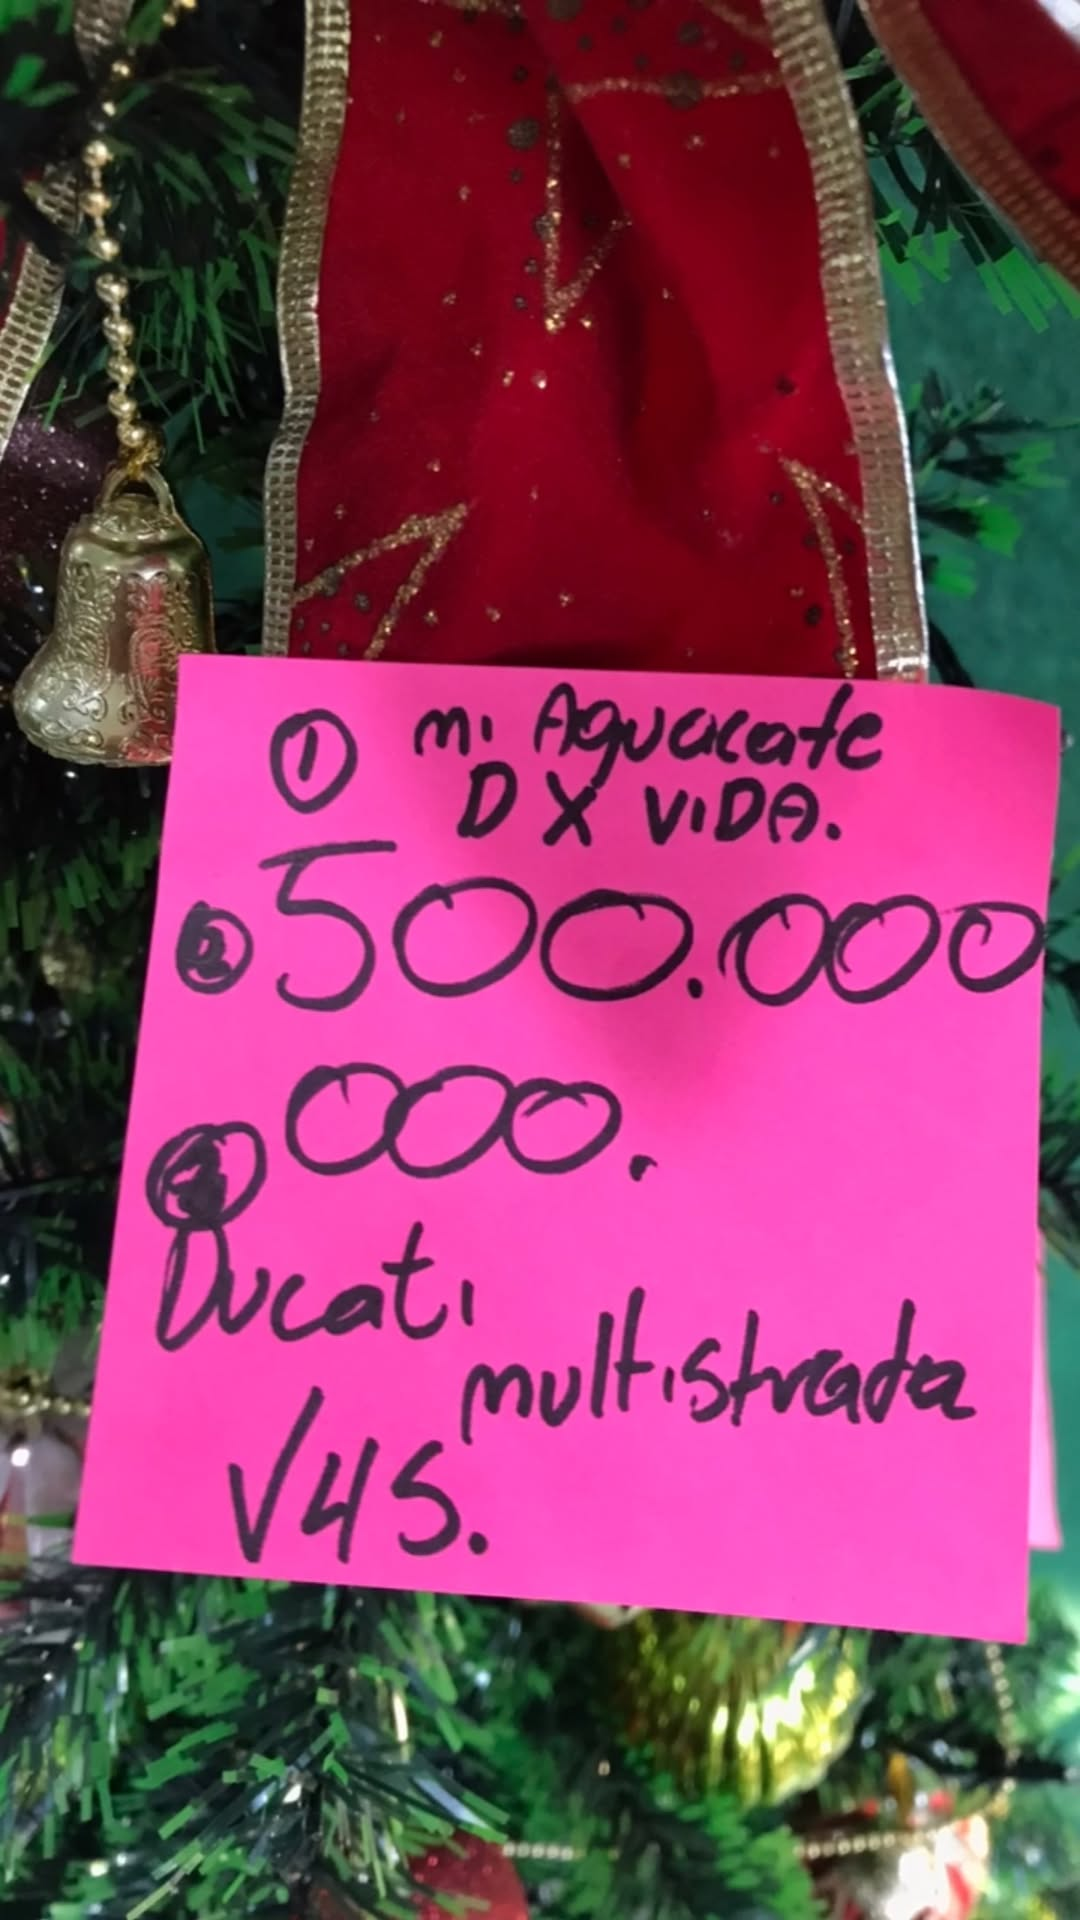 ① mi Aguacate
D X ViDA.
② 500.000
000.
Ducati
multistrada
V4S.